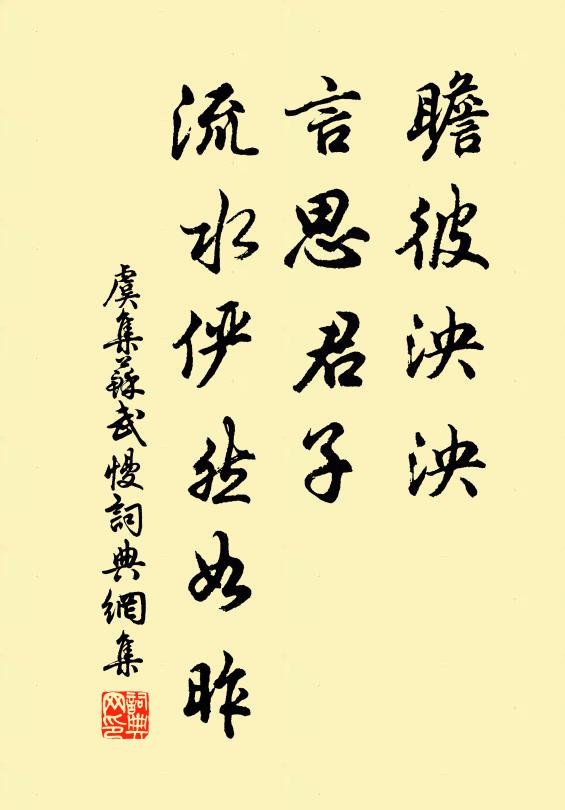 瞻彼泱泱
言思君子
流水俨然如昨
虞集蘇武慢詞典網集